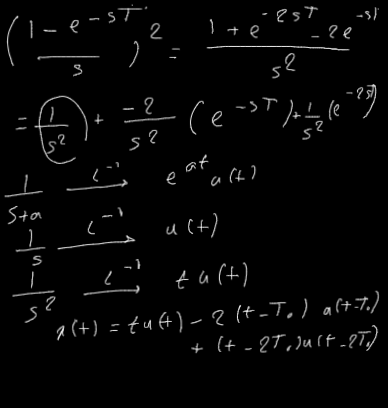 ( (1 - e^{-sT}) / s )^2 = (1 + e^{-2sT} - 2e^{-sT}) / s^2
= 1/s^2 + -2/s^2 (e^{-sT}) + 1/s^2 (e^{-2sT})
1/(s+a) —L^{-1}→ e^{at} u(t)
1/s —L^{-1}→ u(t)
1/s^2 —L^{-1}→ t u(t)
x(t) = t u(t) - 2(t-T₀) u(t-T₀)
+ (t-2T₀) u(t-2T₀)